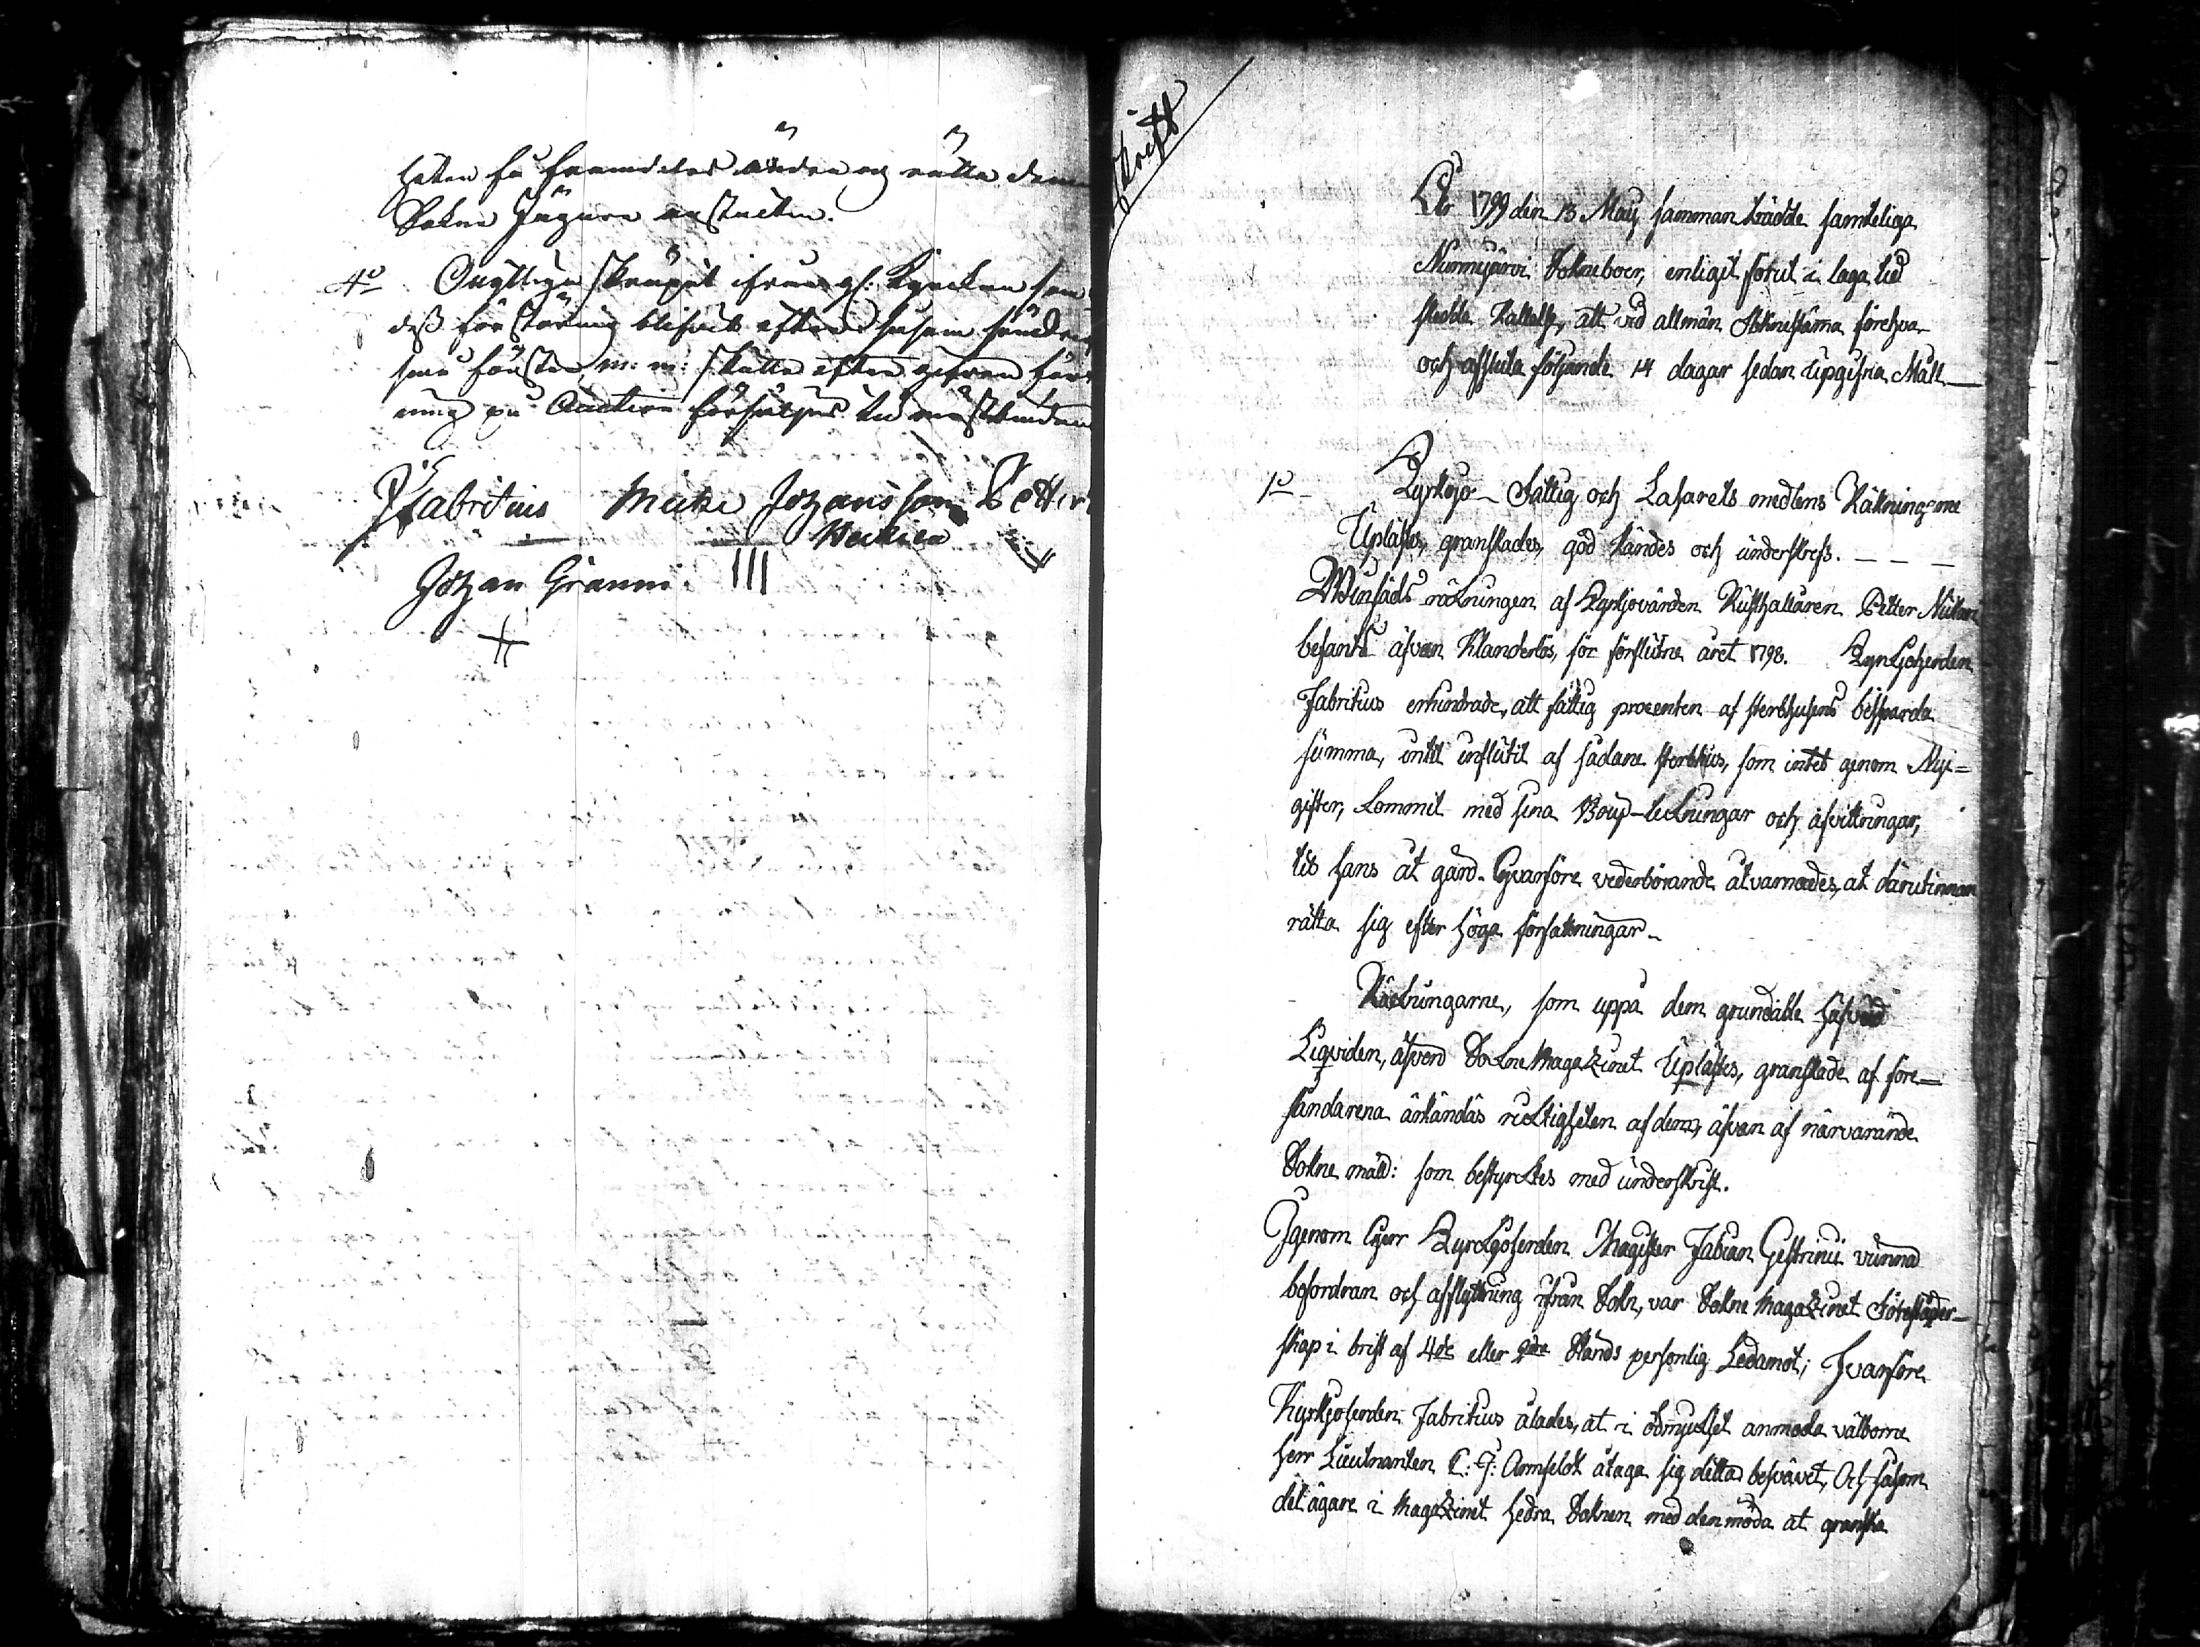 hetten få framdeles ändra og rätta denna
Sokne Jägare ...
4o Onyttiga skräpet ifrån gl: Kyrckan som
dess förstöring blifvit efter såsom sönder
... fönster, m: m: skulle efter gifven för
ning på Auction försäljas till mästbiudande
J Fabritius Meike Johansson Petteri
Heikica
Johan Grann III
Afskrift
År 1799 den 13 Maij samman trädde samteliga
Nurmijärvi Sokneboer, enligit förut i laga tid
skedde Kallelse, att vid allmän Sokne stäma förehva
och afsluta följande 14 dagar sedan Upgifna Mall
1o Kyrkjo- Fattig och Lasarets medlens Räkningarne
Uplästes, granskades, god kändes och underskrefs.
Winsäds räkningen af Kyrkjovärden Rusthallaren Petter Nukari
befants äfven Klanderlös, för förflutne året 1798. Kyrckjoherden
Fabritius erhindrade, att fattig procenten af sterbhusens besparda
summa, intet influtit af sådane sterbhus, som intet genom Nij=
gifter, kommit med sina Boup-teckningar och afvittringar,
til hans åt gärd. Hvarföre vederbörande åtvarnades, at därutinnan
rätta sig efter höga författningar
Räckningarne, som uppå dem grundade sig vid
Liqviden, äfvend Sockne Magazinet Uplästes, granskade af före-
ståndarena ärkändes ricktigheten af dem, äfven af närvarande
Sokne män: som bestyrcktes med underskrift.
Igenom Herr Kyrckjoherden Magister Fabian Gestrini vunna
befordran och afflyttning ifrån Sokn, var Sokne Magazinet Föreståder-
skap i brist af 4de eller 2dre Stånds personlig Ledamot; hvarföre
Kyrkjoherden Fabritius ålades, at i ödmjuckhet anmoda välborne
herr Lieutnanten C: G: Armfeldt åtaga sig detta besväret, Och såsom
del ägare i Magazinet hedra Soknen med den möda at granska